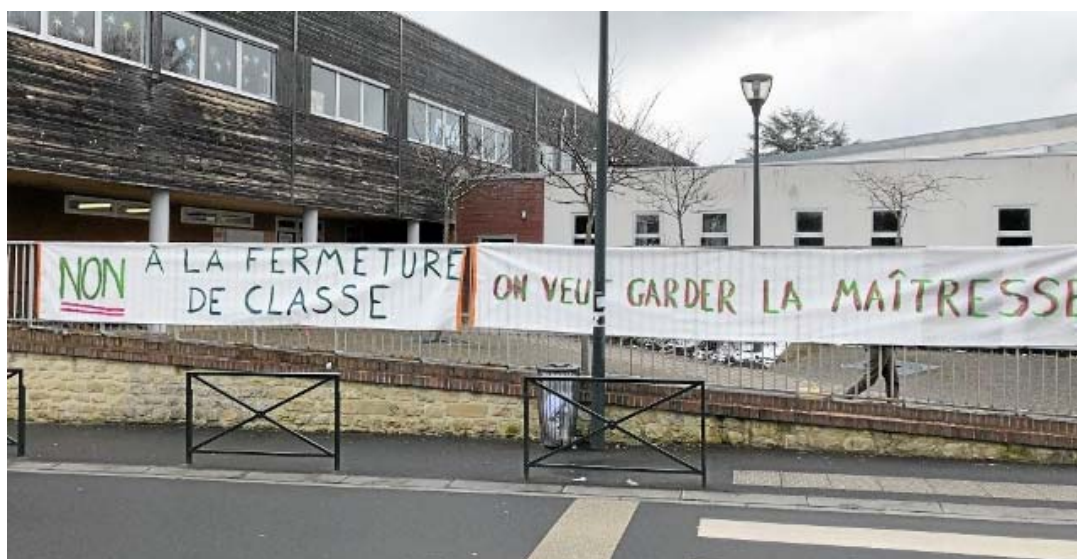 NON
À LA FERMETURE
DE CLASSE
ON VEUT GARDER LA MAÎTRESSE